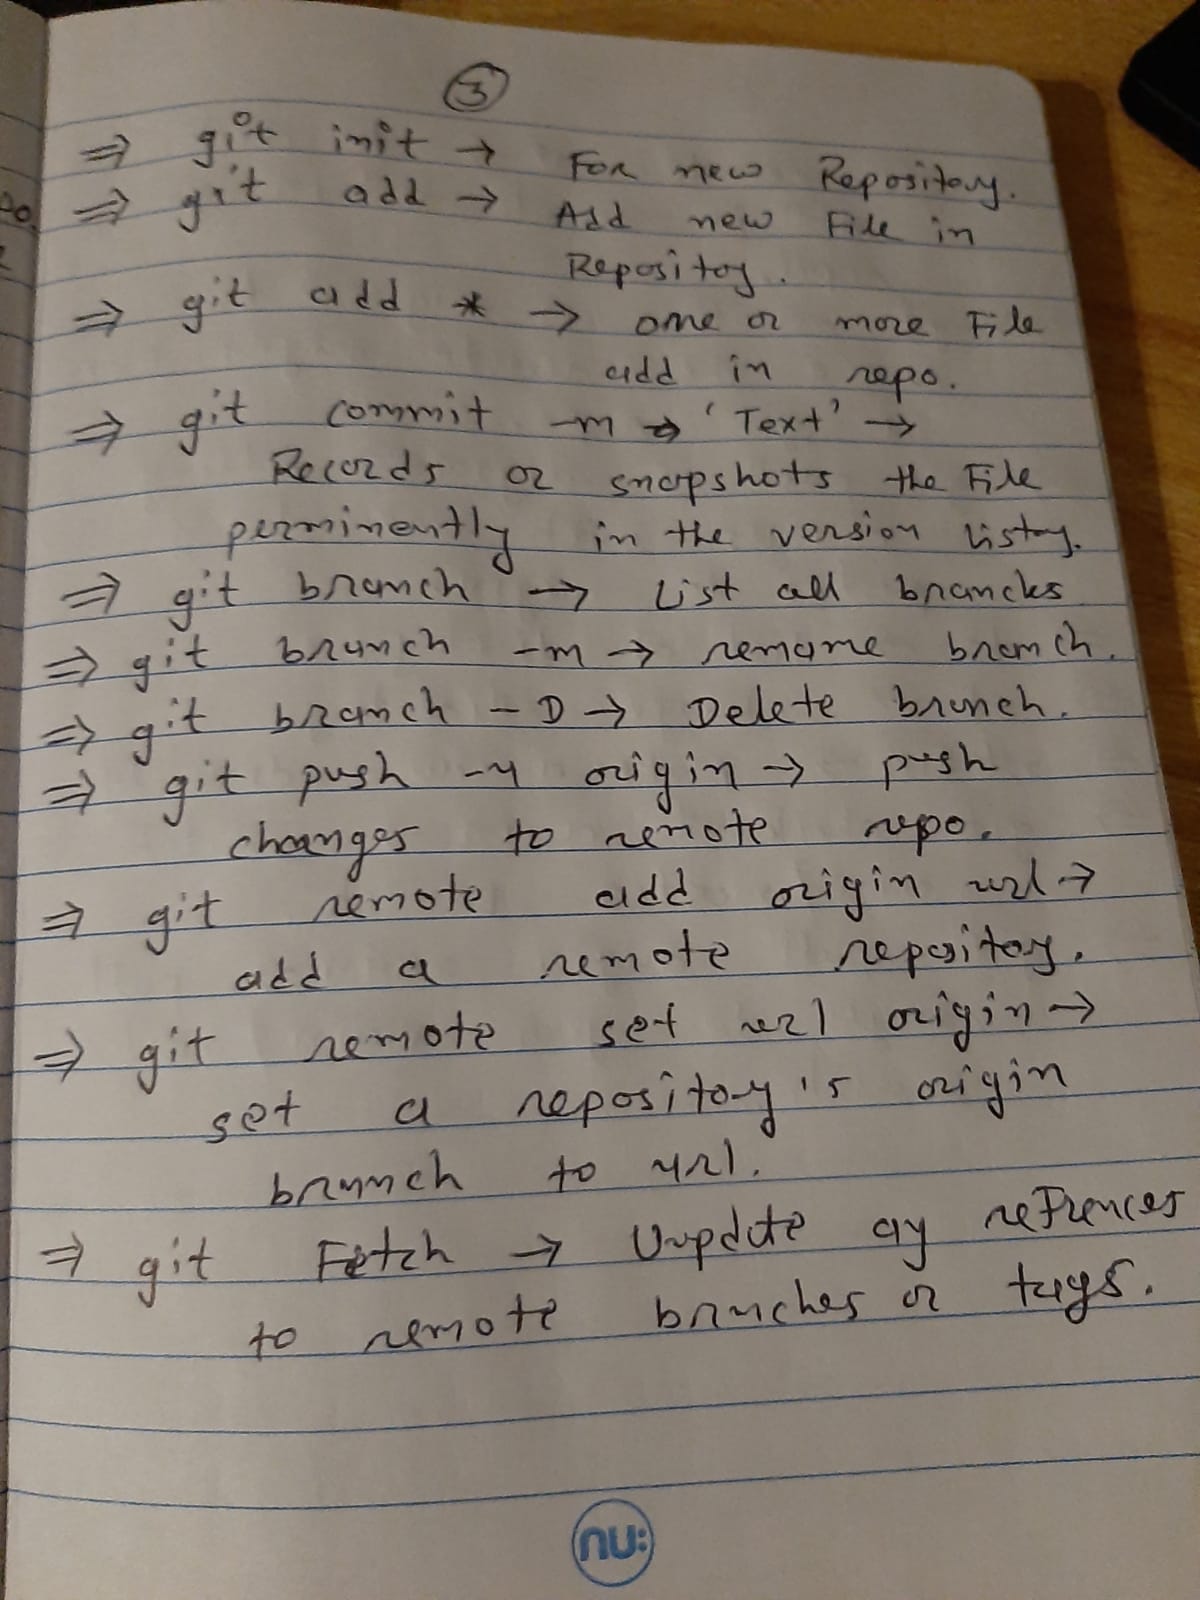 3
⇒ git init → For new Repository.
⇒ git add → Add new File in
Repository.
⇒ git add * → one or more File
add in repo.
⇒ git commit -m → 'Text' →
Records or snapshots the File
perminently in the version history.
⇒ git branch → List all branches
⇒ git branch -m → rename branch.
⇒ git branch -D → Delete branch.
⇒ git push -u origin → push
changes to remote repo.
⇒ git remote add origin url →
add a remote repository.
⇒ git remote set url origin →
set a repository's origin
branch to url.
⇒ git Fetch → refrences
to remote branches or tags.
nu: